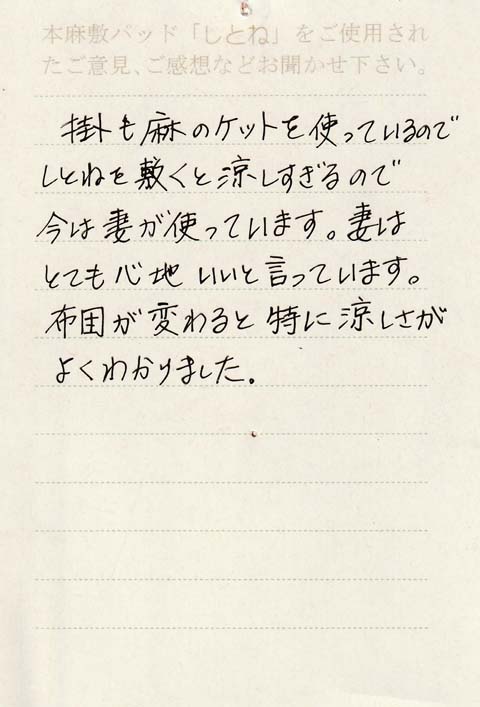 本麻敷パッド「しとね」をご使用され
たご意見、ご感想などお聞かせ下さい。
掛も麻のケットを使っているので
しとねを敷くと涼しすぎるので
今は妻が使っています。妻は
とても心地いいと言っています。
布団が変わると特に涼しさが
よくわかりました。